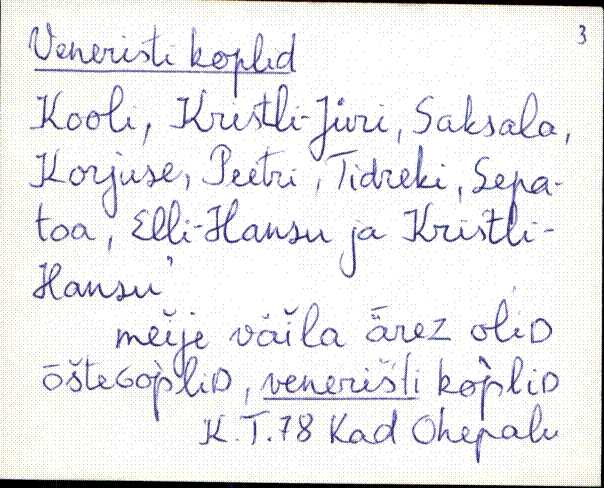 3
Veneristi koplid
Kooli, Kristli-Jüri, Saksala,
Korjuse, Peetri, Tidreki, Sepa-
toa, Elli-Hansu ja Kristli-
Hansu'
meije väĭla ärez oliD
kopliD, venerišti kòpliD
K.T.78 Kad Ohepalu